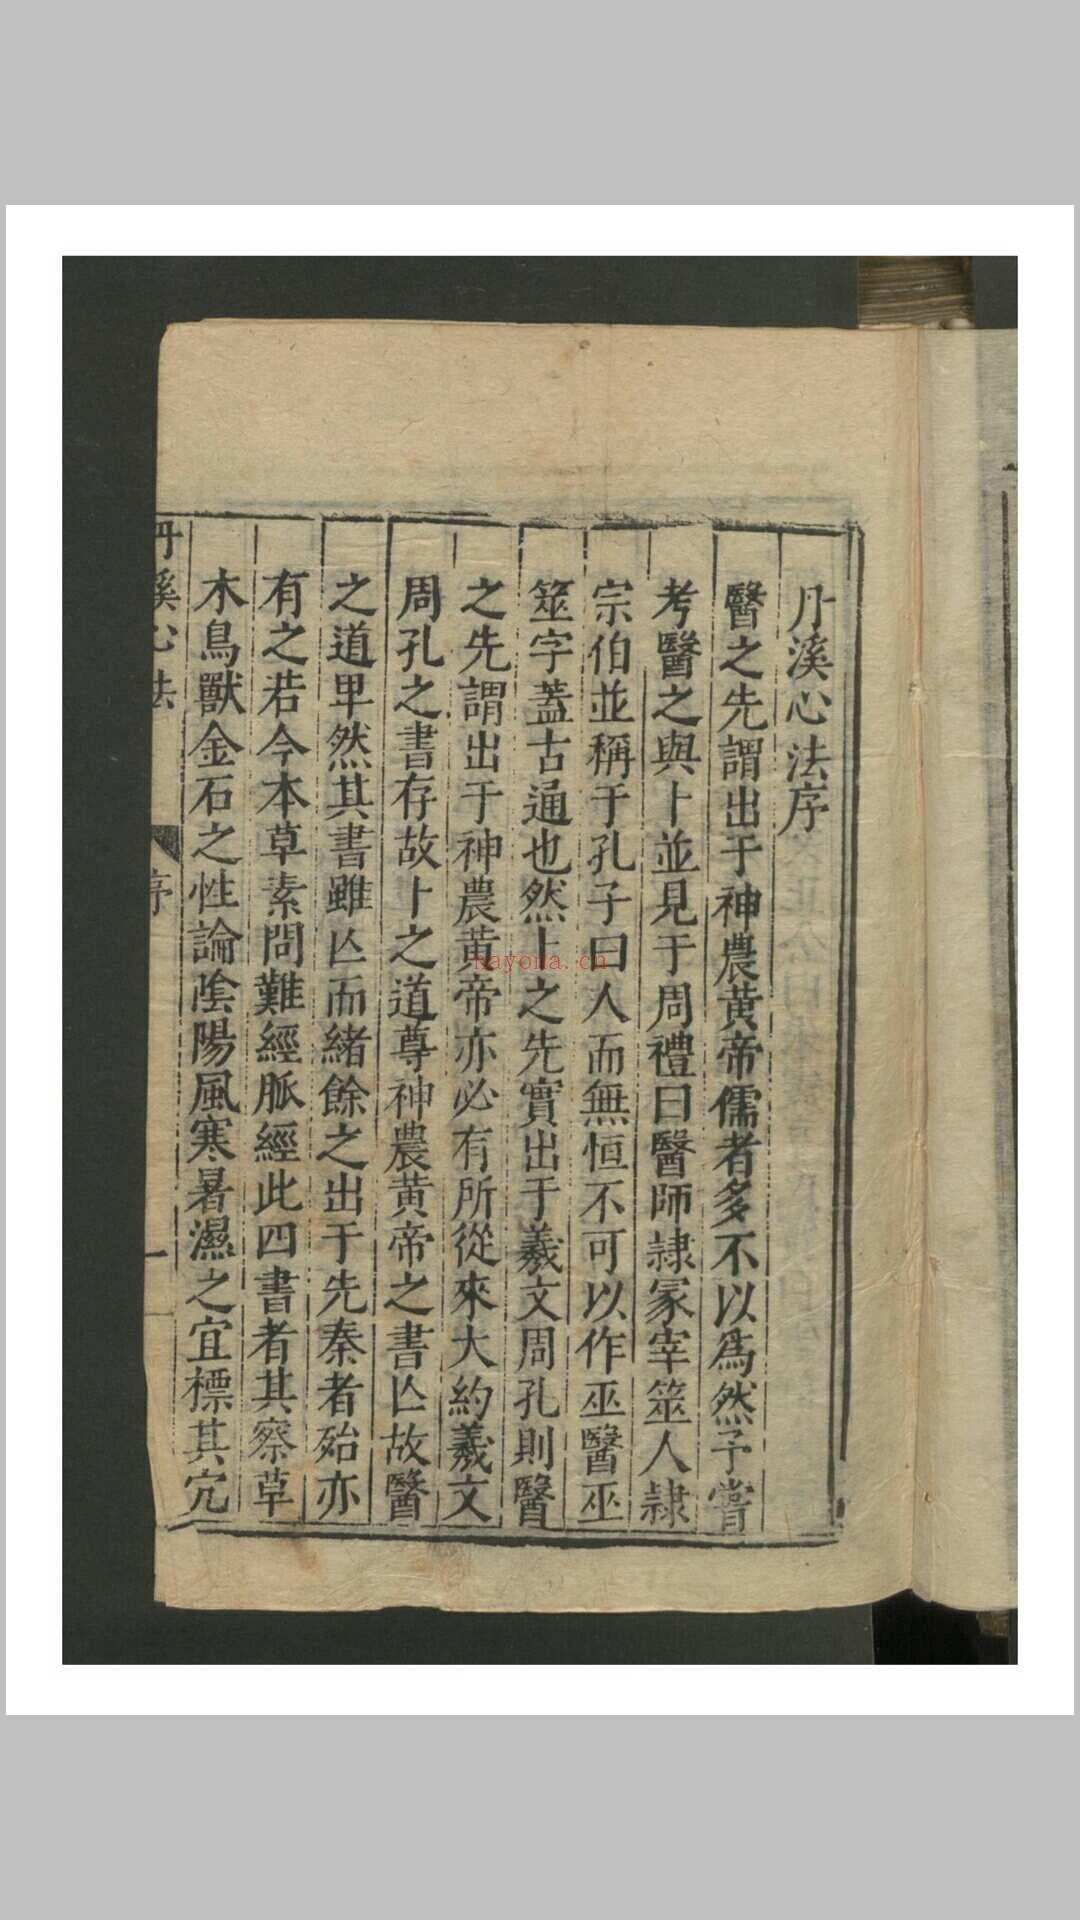 丹溪心法序
醫之先謂出于神農黄帝儒者多不以爲然予嘗
考醫之與卜並見于周禮曰醫師隷冢宰筮人隷
宗伯並稱于孔子曰人而無恒不可以作巫醫巫
筮字蓋古通也然卜之先實出于羲文周孔則醫
之先謂出于神農黄帝亦必有所從來大約羲文
周孔之書存故卜之道尊神農黄帝之書亾故醫
之道卑然其書雖亾而緒餘之出于先秦者殆亦
有之若今本草素問難經脈經此四書者其察草
木鳥獸金石之性論陰陽風寒暑濕之宜標其穴
丹溪心法 序 一
nayona.cn